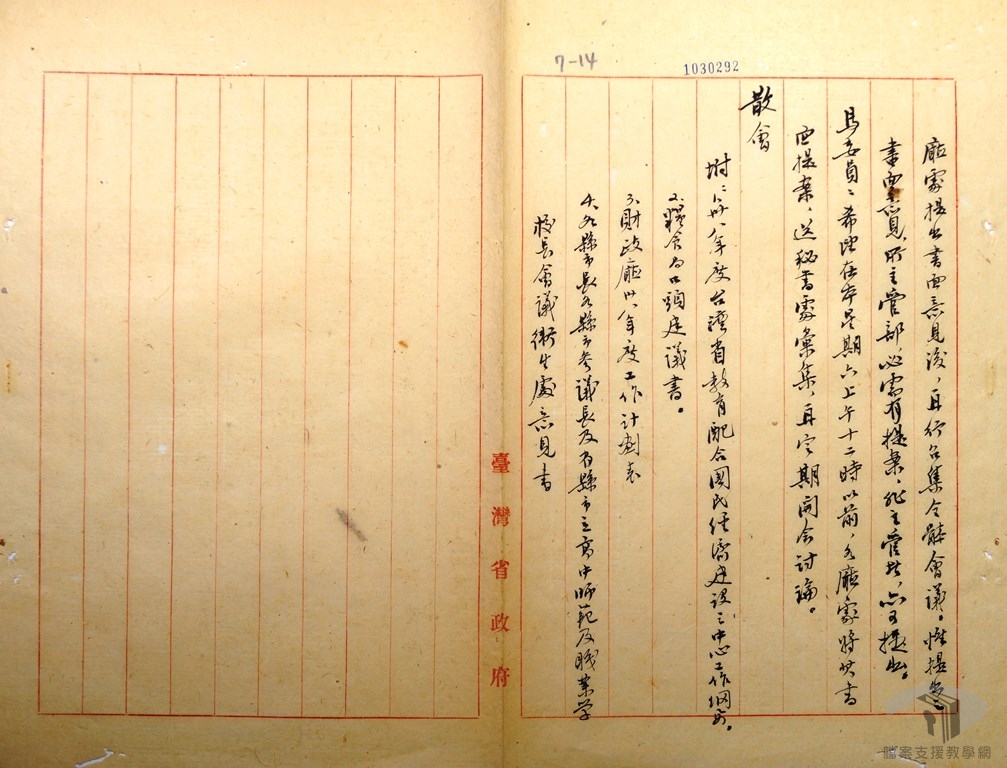 7-14
1030292
廳處提出書面意見後，再行召集全體會議。惟提出之
書面意見，所主管部必需有提案，非主管者，亦可提出。
馬委員：希望在本星期六上午十二時以前，各廳處將其書
面提案，送秘書處彙集，再定期開會討論。
散會
附：1.卅八年度台灣省教育配合國民經濟建設之中心工作綱要。
2.糧食局口頭建議書。
3.財政廳卅八年度工作計劃表
4.各縣市長各縣市參議長及省縣市立高中師範及職業學
校長會議衛生處意見書
臺灣省政府
檔案支援教學網